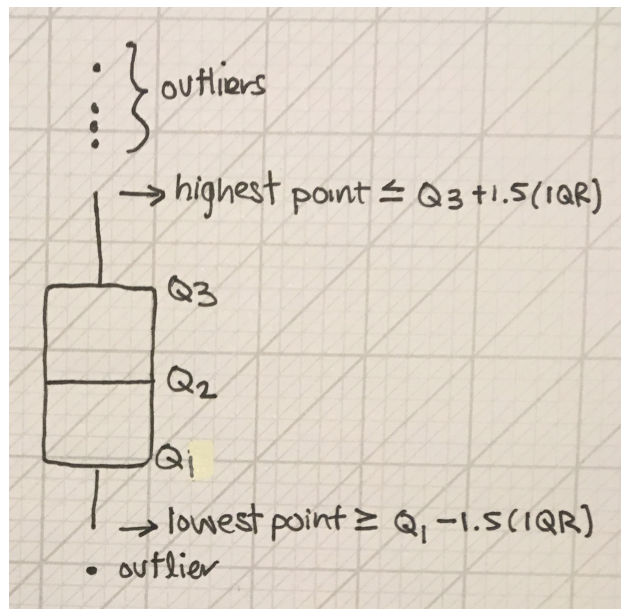 outliers
highest point ≤ Q3 + 1.5(IQR)
Q3
Q2
Q1
lowest point ≥ Q1 - 1.5(IQR)
outlier